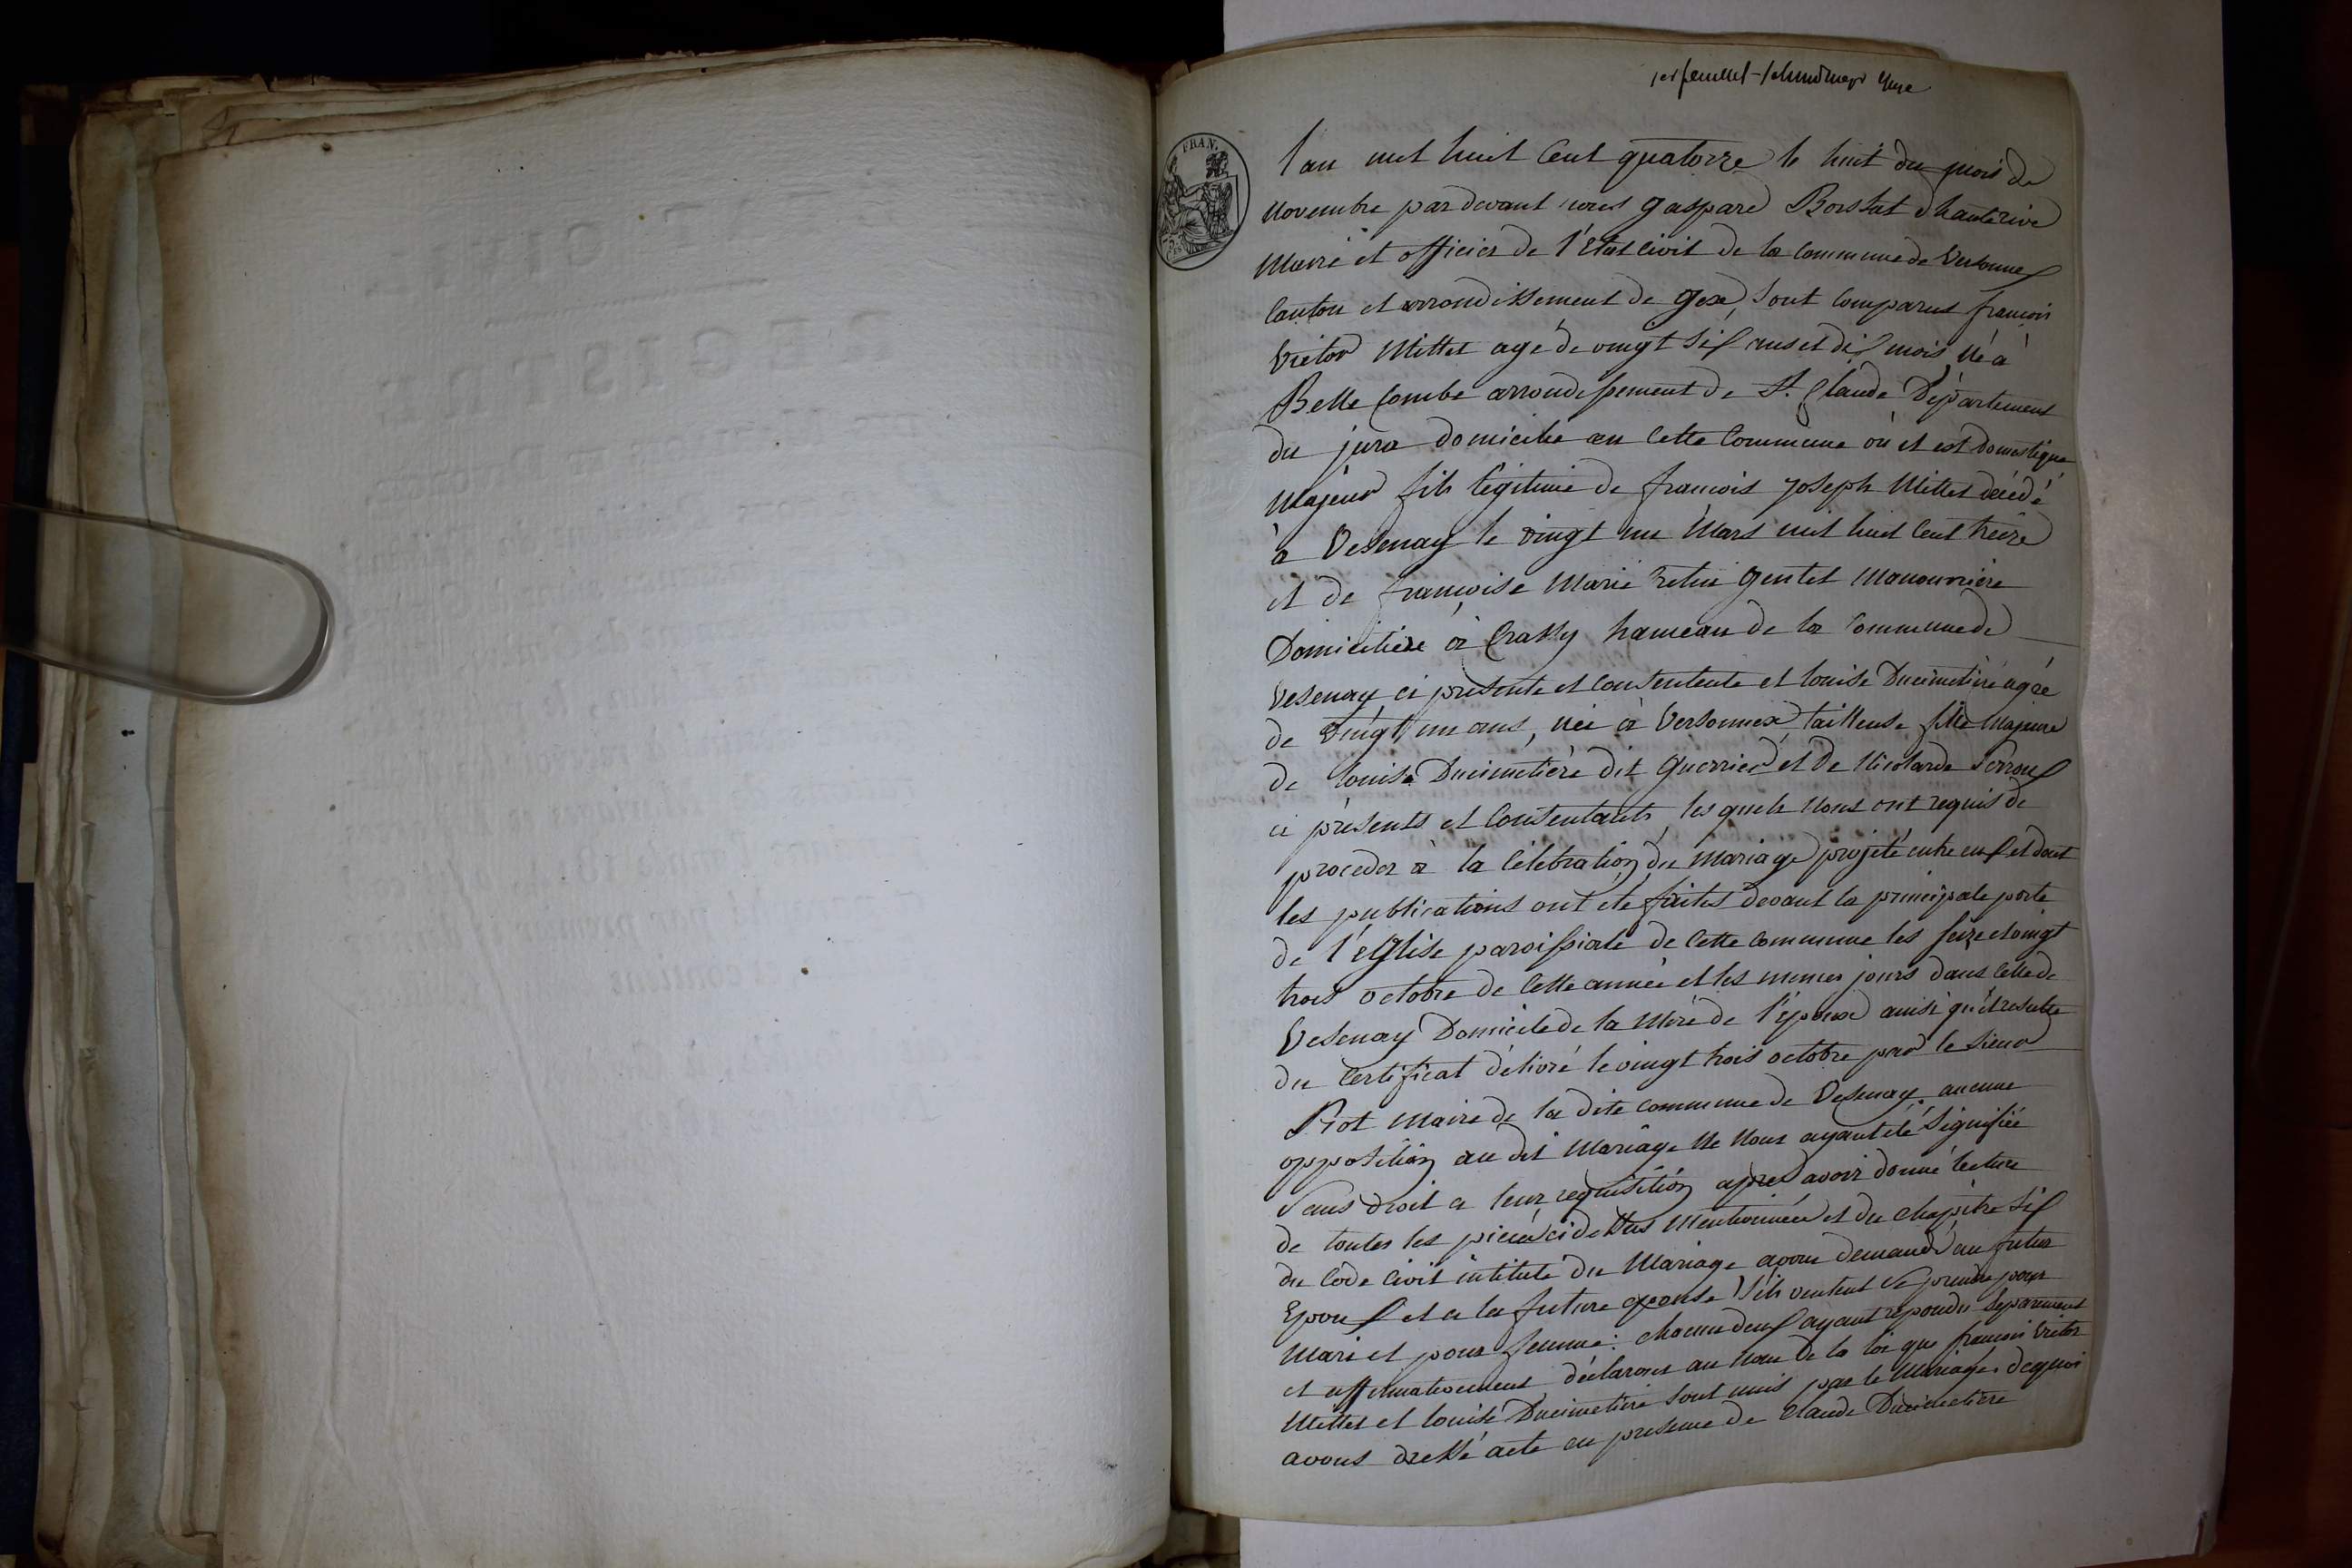 1er feuillet
FRAN.
l'an mil huit Cent quatorze le huit du mois de
Novembre par devant nous gaspard Borssat d'hauterive
Maire et officier de l'Etat Civil de la Commune de Versonnex
Canton et arrondissement de gex, sont Comparus francois
Victor Millet agé de vingt six ans et dix mois, né à
Belle Combe arrondissement de St. Claude Département
du jura domicilié en Cette Commune où il est domestique
Majeur fils légitime de francois joseph Millet décédé
à Vesenay le vingt un Mars mil huit Cent treize
et de francoise Marie gentet Manouvrière
Domiciliée à Crassy hameau de la Commune de
Vesenay ci présente et Consentente et louise Ducimetière agée
de vingt un ans, née à Versonnex, tailleuse fille Majeure
de louise Ducimetière dit Guerrier et de Nicolarde Perroux
ci présents et Consentants les quels Nous ont requis de
proceder à la Célébration du Mariage projeté entre eux et dont
les publications ont été faites devant la principale porte
de l'eglise paroissiale de Cette Commune les seize et vingt
trois octobre de Cette année et les memes jours dans Celle de
Vesenay Domicile de la Mère de l'époux ainsi qu'il resulte
du Certificat délivré le vingt trois octobre par le Sieur
Maire de la dite Commune de Vesenay. aucune
opposition au dit Mariage Ne Nous ayant été Signifiée
faus droit a leur requisition apres avoir donné lecture
de toutes les pieces ci dessus Mentionnées et du Chapitre Six
du Code Civil intitulé du Mariage avons demandé au futur
Epoux et a la future epouse S'ils veulent Se prendre pour
Mari et pour femme: chacun deux ayant répondu Séparement
et affirmativement déclarons au Nom de la loi que francois Victor
Millet et louise Ducimetière sont unis par le Mariage. de quoi
avons dressé acte en presence de Claude Ducimetière